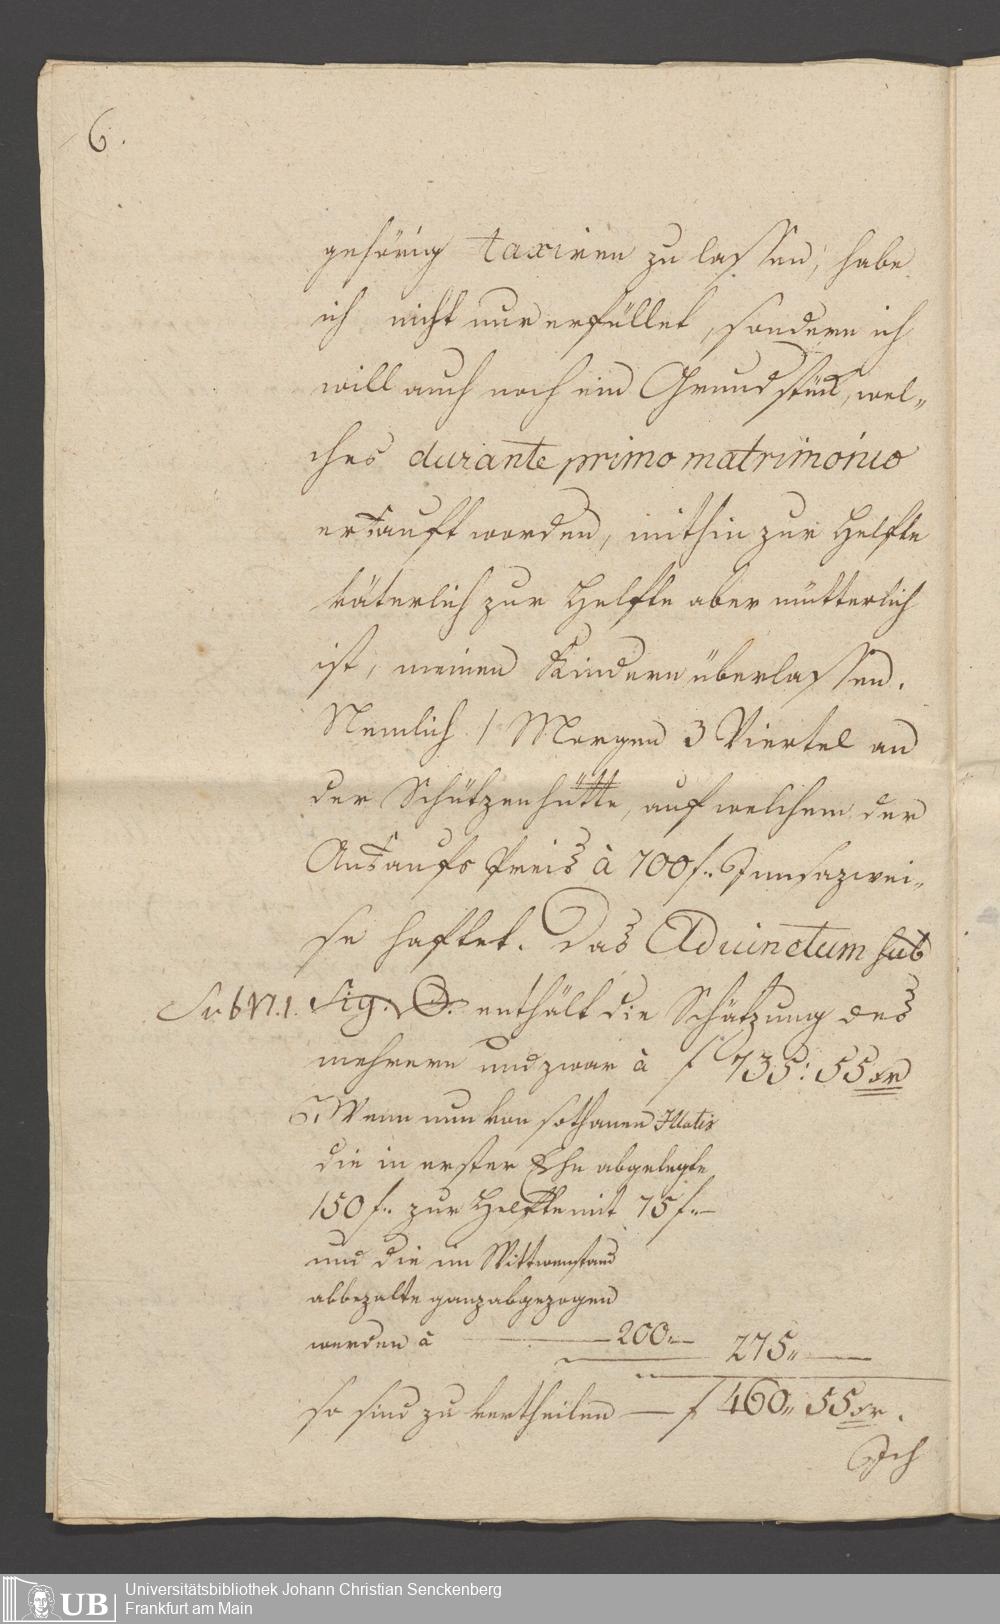 6.
gehörig taxiren zu lassen, habe
ich nicht nur erfüllet, sondern ich
will auch noch ein Grundstük, wel„
ches durante primo matrimonio
erkauft worden, mithin zur Helfte
väterlich zur Helfte aber mütterlich
ist, meinen Kindern überlassen.
Nemlich 1 Morgen 3 Viertel an
der Schützenhütte, auf welchem der
Ankaufs Preis à 700 f. Innsazwei„
se haftet. Das Adiunctum sub
Sub N. 1. Sig. enthält die Schätzung des
mehrern und zwar à f 735: 55 xr
Wenn nun von sothanen Illatis
die in erster Ehe abgelegte
150 f. zur Helfte mit 75 f. —
und die im Wittwenstand
abbezalte ganz abgezogen
werden à — 200 „ — 275 „ —
so sind zu vertheilen — f 460 „ 55 xr.
Ich
UB Universitätsbibliothek Johann Christian Senckenberg
Frankfurt am Main